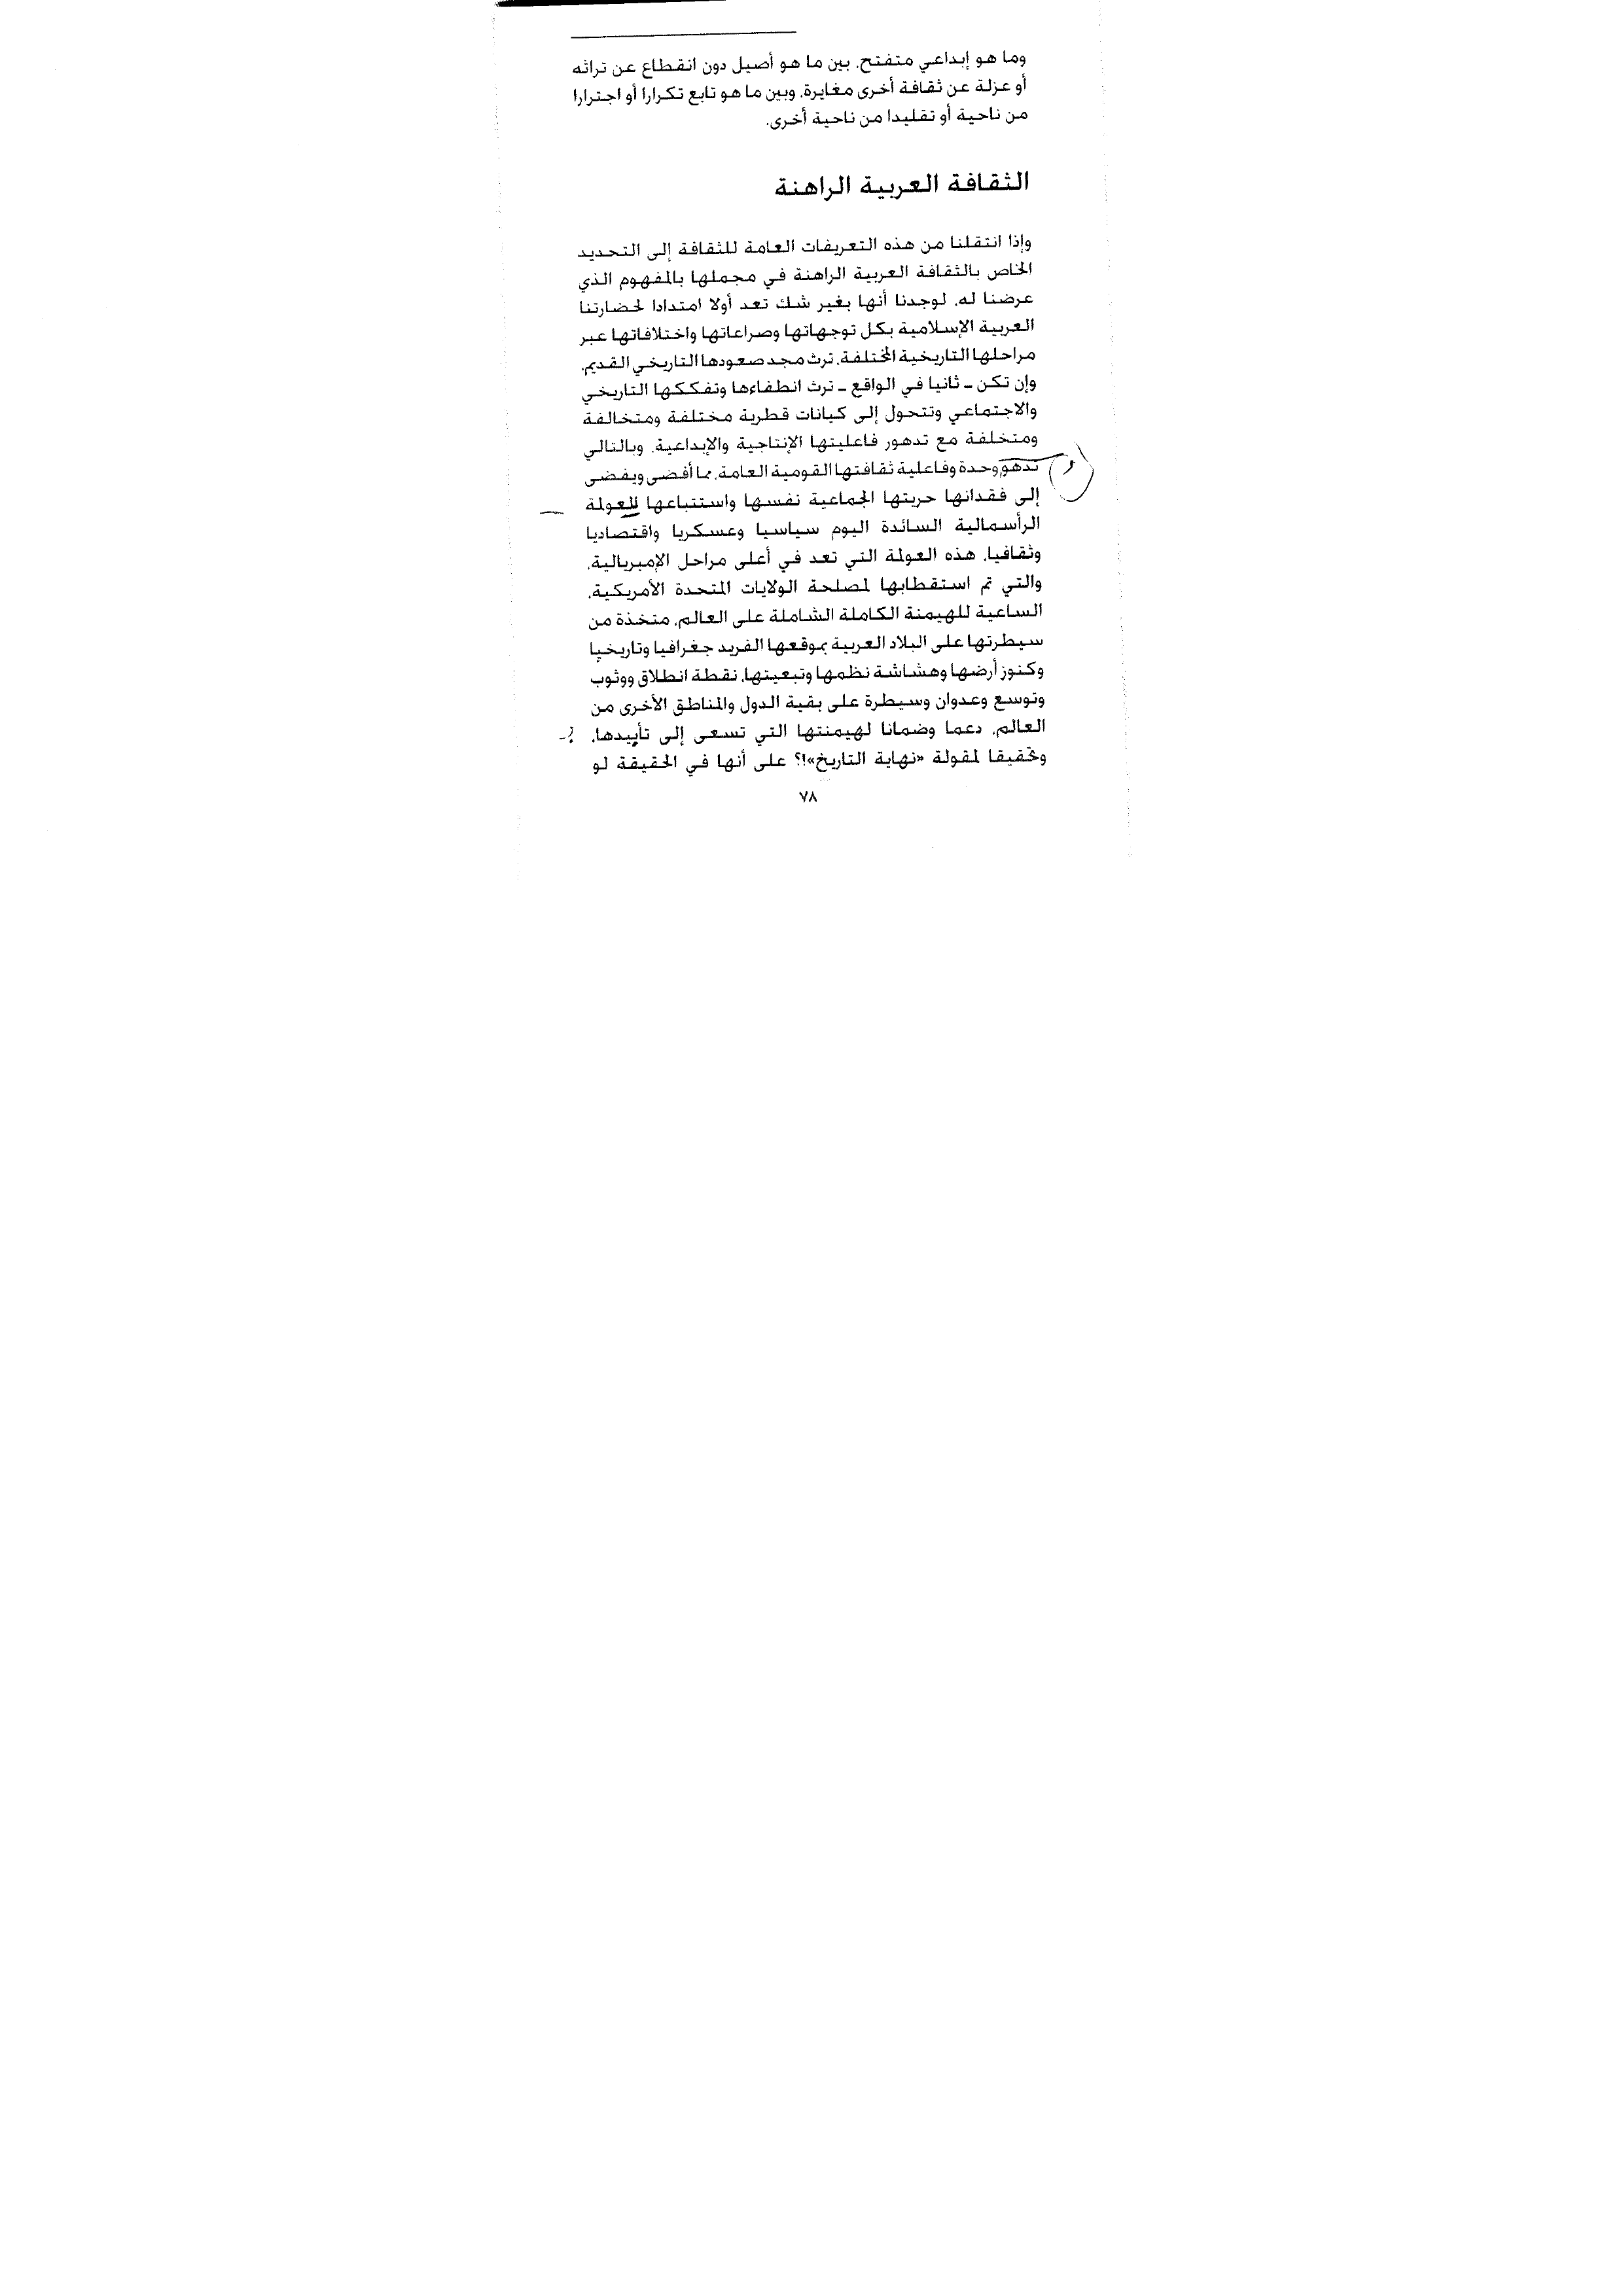 وما هو إبداعي متفتح. بين ما هو أصيل دون انقطاع عن تراثه
أو عزلة عن ثقافة أخرى مغايرة. وبين ما هو تابع تكرارا أو اجترارا
من ناحية أو تقليدا من ناحية أخرى.
الثقافة العربية الراهنة
وإذا انتقلنا من هذه التعريفات العامة للثقافة إلى التحديد
الخاص بالثقافة العربية الراهنة في مجملها بالمفهوم الذي
عرضنا له. لوجدنا أنها بغير شك تعد أولا امتدادا لحضارتنا
العربية الإسلامية بكل توجهاتها وصراعاتها واختلافاتها عبر
مراحلها التاريخية المختلفة. ترث مجد صعودها التاريخي القديم.
وإن تكن ـ ثانيا في الواقع ـ ترث انطفاءها وتفككها التاريخي
والاجتماعي وتتحول إلى كيانات قطرية مختلفة ومتخالفة
ومتخلفة مع تدهور فاعليتها الإنتاجية والإبداعية. وبالتالي
تدهو وحدة وفاعلية ثقافتها القومية العامة. مما أفضى ويفضى
ر
إلى فقدانها حريتها الجماعية نفسها واستتباعها للعولمة
الرأسمالية السائدة اليوم سياسيا وعسكريا واقتصاديا
وثقافيا. هذه العولمة التي تعد في أعلى مراحل الإمبريالية.
والتي تم استقطابها لمصلحة الولايات المتحدة الأمريكية.
الساعية للهيمنة الكاملة الشاملة على العالم. متخذة من
سيطرتها على البلاد العربية بموقعها الفريد جغرافيا وتاريخيا
وكنوز أرضها وهشاشة نظمها وتبعيتها. نقطة انطلاق ووثوب
وتوسع وعدوان وسيطرة على بقية الدول والمناطق الأخرى من
العالم. دعما وضمانا لهيمنتها التي تسعى إلى تأبيدها.
وتحقيقا لمقولة «نهاية التاريخ»!؟ على أنها في الحقيقة لو
٧٨